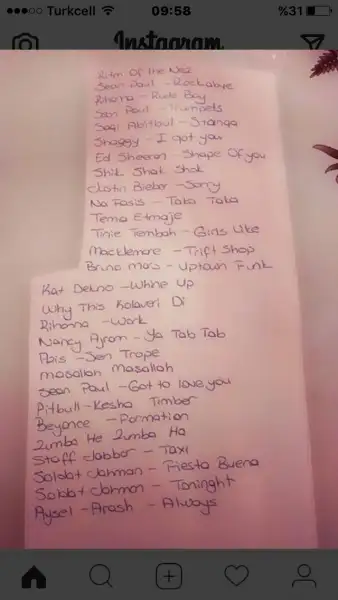 Turkcell 09:58 %31
Instagram
Ritm Of the Nez
Sean Paul - Rockabye
Rihana - Rude Boy
Sean Paul - Trumpets
Sagi Abitbul - Stanga
Shaggy - I got you
Ed Sheeran - Shape Of you
Shik Shak Shok
Justin Bieber - Sorry
No Fasis - Taka Taka
Tema Etmaje
Tinie Tembah - Girls Like
Macklemore - Trift Shop
Bruno Mars - Uptown Funk
Kat Deluno - Whine Up
Why This Kolaveri Di
Rihanna - Work
Nancy Ajram - Ya Tab Tab
Abis - Sen Trope
Masallah Masallah
Sean Paul - Got to love you
Pitbull - Kesha Timber
Beyonce - Formation
Zumba He Zumba Ha
Staff Jabbar - Taxi
Soldat Jahman - Fiesta Buena
Soldat Jahman - Toninght
Aysel - Arash - Always